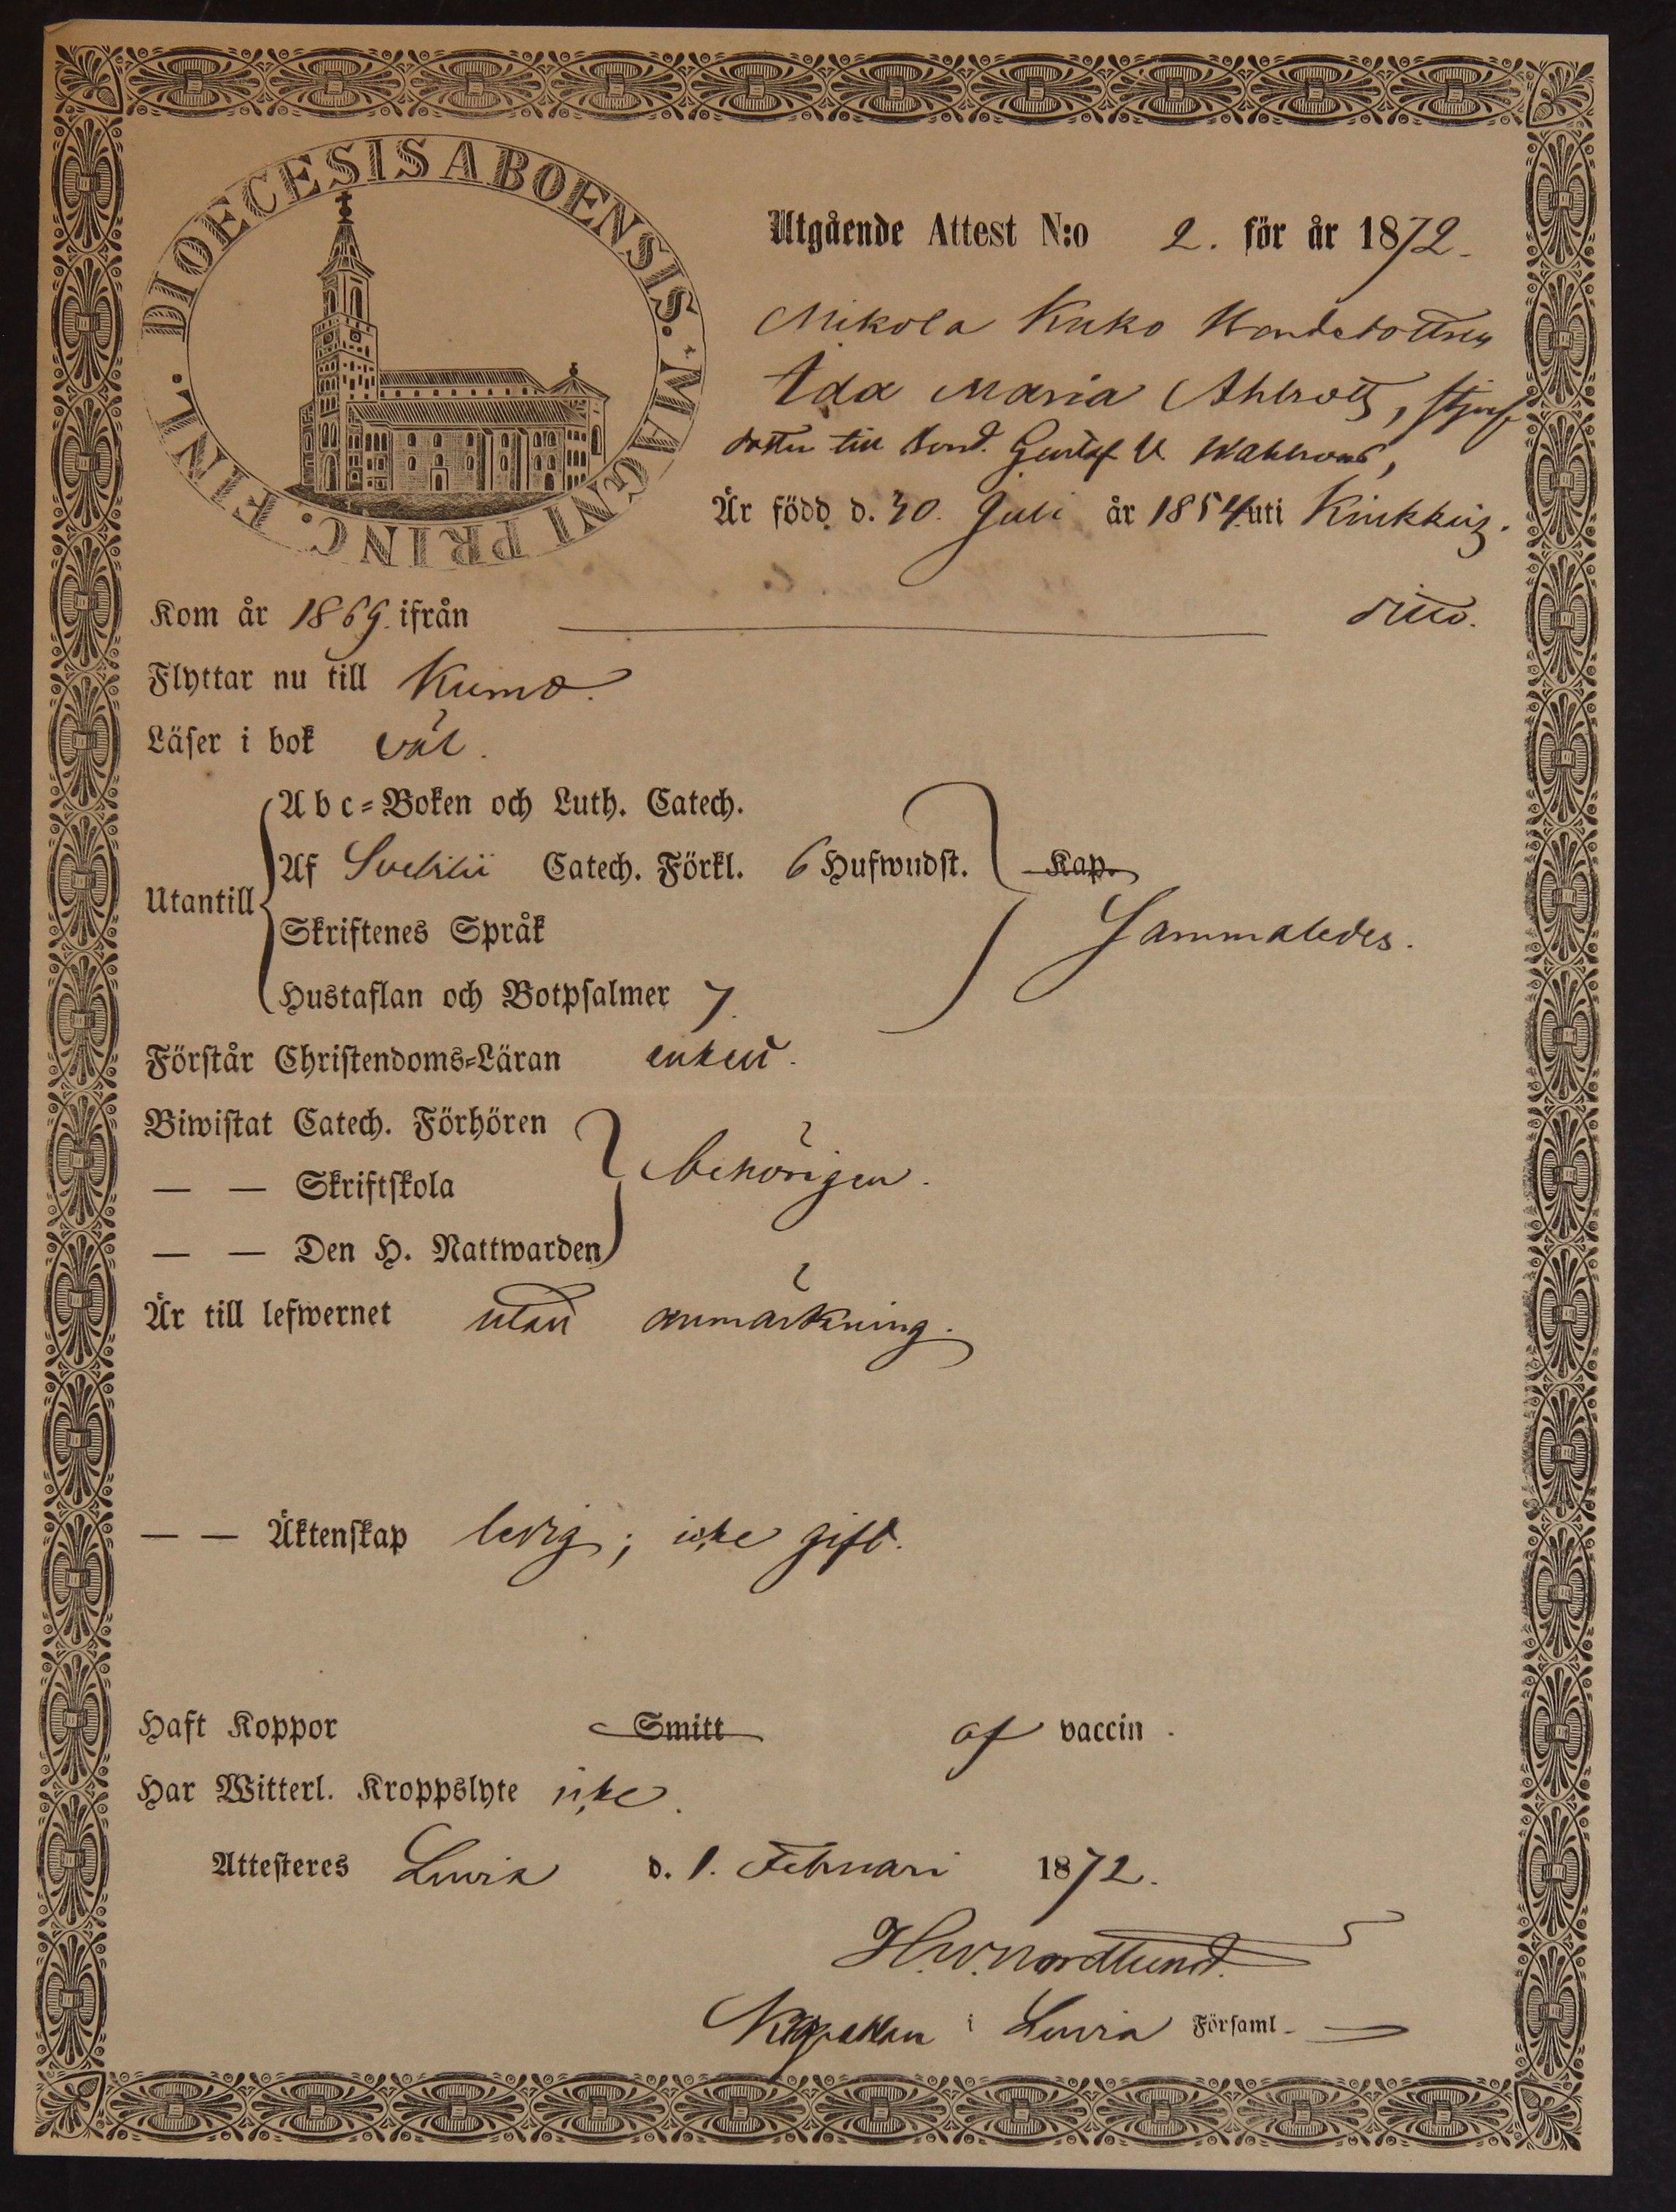 DIOECESIS ABOENSIS. MAGNI PRINC. FINL.
Utgående Attest N:o 2. för år 1872.
Mikola Kuko Bondedottren
Ida Maria Ahlrots, styf
dotter till Bond. Gustaf
Är född d. 30. Juli år 1854 uti Kiukkais.
Kom år 1869. ifrån ditto.
Flyttar nu till Kumo.
Läser i bok väl.
Utantill
Abc-Boken och Luth. Catech.
Af Svebilii Catech. Förkl. 6 Hufwudst. Kap.
Skriftenes Språk
Sammaledes.
Hustaflan och Botpsalmer 7.
Förstår Christendoms-Läran enkelt.
Biwistat Catech. Förhören
— — Skriftskola
behörigen.
— — Den H. Nattwarden
Är till lefwernet utan anmärkning.
— — Äktenskap ledig; icke gift.
Haft Koppor Smitt af vaccin.
Har Witterl. Kroppslyte icke.
Attesteres Luvia d. 1. Februari 1872.
H.W. Nordlund.
Kapellan i Luvia Församl.